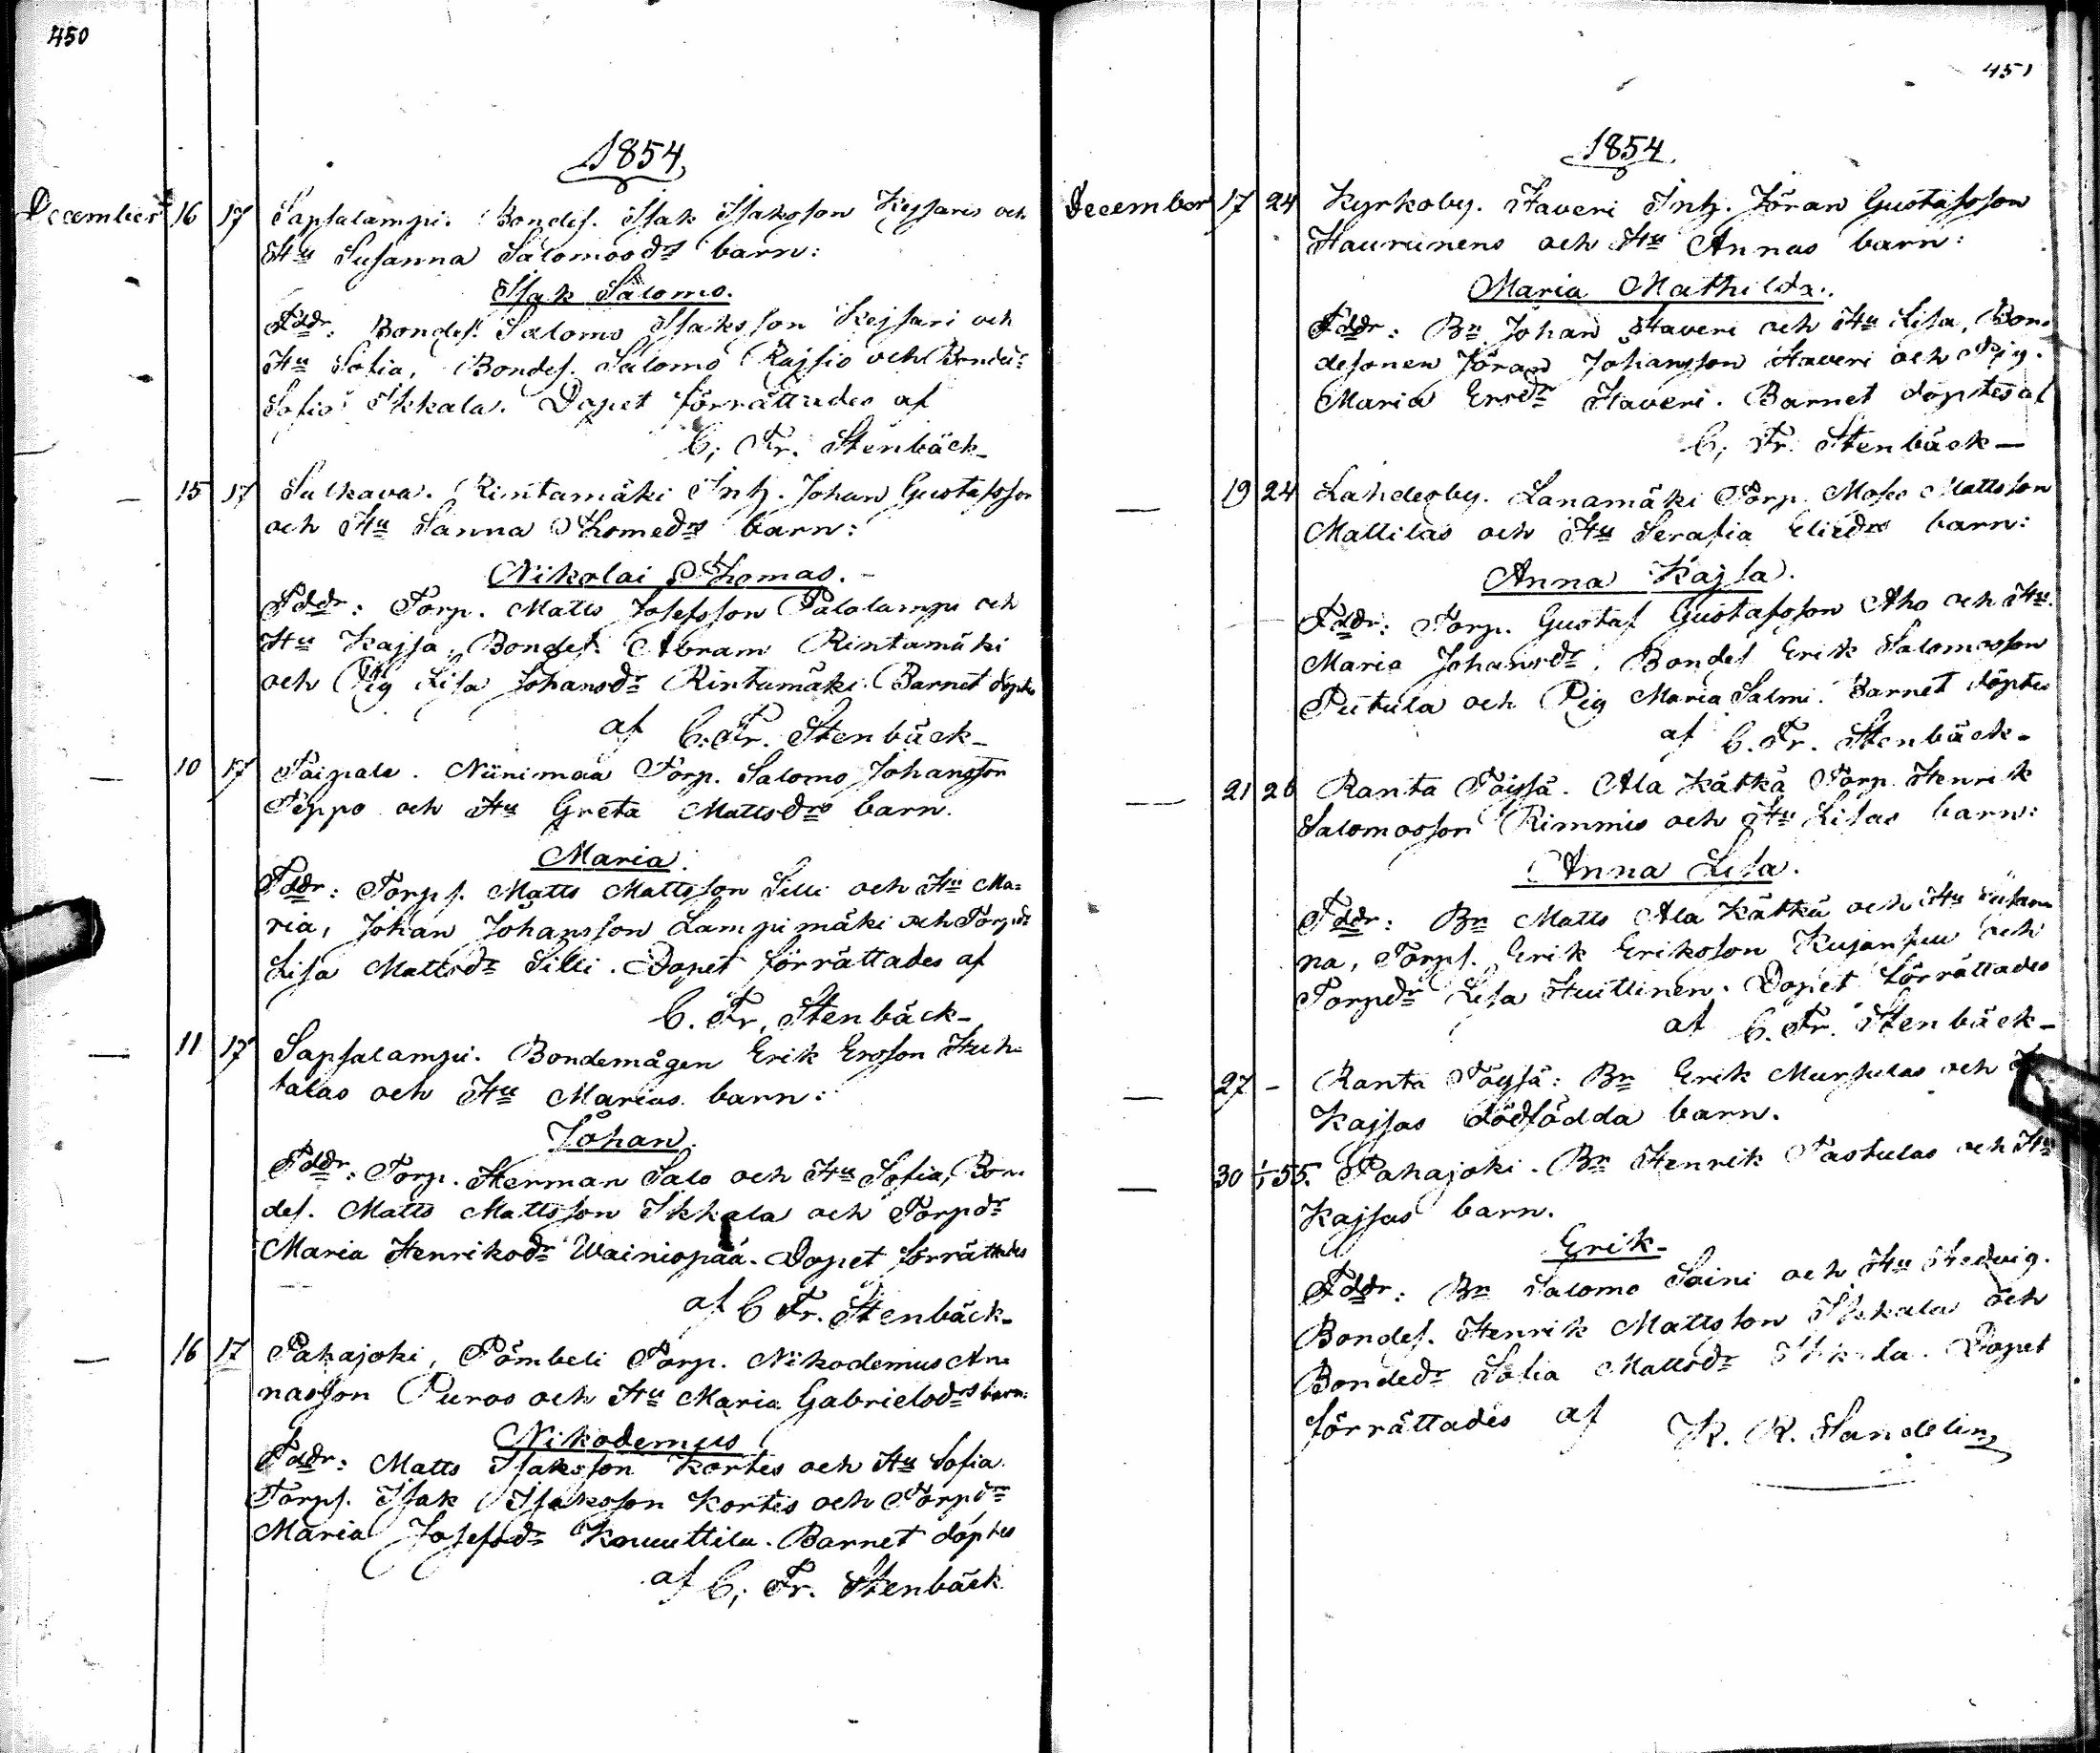 450
1854.
December 16 17 Sapsalampi. Bondes. Isak Isaksson Kejsaris och
Hu Susanna Salomosdrs barn:
Isak Salomo.
Fddr: Bondes. Salomo Isaksson Kejsari och
Hu Sofia, Bondes. Salomo Rajsio och Bonded:
Sofia Ikkala. Dopet förrättades af
C. Fr. Stenbäck
— 15 17 Sulkava. Rintamäki Inh. Johan Gustafsson
och Hu Sanna Thomedrs barn:
Nikolai Thomas.
Fddr: Torp. Matts Josefsson Palolampi och
Hu Kajsa, Bondes. Abram Rintamäki
och Pig Lisa Johansdr Rintamäki. Barnet döptes
af C. Fr. Stenbäck
— 10 17 Taipale. Niinimaa Torp. Salomo Johansson
Teppo och Hu Greta Mattsdrs barn.
Maria.
Fddr: Torps. Matts Mattsson Silli och Hu Ma=
ria, Johan Johansson Lampimäki och Torpdr
Lisa Mattsdr Silli. Dopet förrättades af
C. Fr. Stenbäck
— 11 17 Sapsalampi. Bondemågen Erik Ersson Huh=
talas och Hu Marias barn:
Johan.
Fddr: Torp. Herman Salo och Hu Sofia, Bon=
des. Matts Mattsson Ikkala och Torpdr
Maria Henriksdr Wainiopää. Dopet förrättades
af C Fr. Stenbäck
— 16 17 Pahajoki, Pömbeli Torp. Nikodemus An=
nasson Puros och Hu Maria Gabrielsdrs barn:
Nikodemus
Fddr: Matts Isaksson Kortes och Hu Sofia.
Torps. Isak Isaksson Kortes och Torpdr
Maria Josefsdr Knuuttila. Barnet döptes
af C. Fr. Stenbäck
451
1854.
December 17 24 Kyrkoby. Haveri Inh. Jöran Gustafsson
Haurunens och Hu Annas barn:
Maria Mathilda.
Fddr: Bn Johan Haveri och Hu Lisa, Bon=
desonen Jöran Johansson Haveri och Pig.
Maria Ersdr Haveri. Barnet döptes af
C. Fr. Stenbäck
— 19 24 Lahdesby. Lanamäki Torp. Moses Mattsson
Mattilas och Hu Serafia Eliedrs barn:
Anna Kajsa.
Fddr: Torp. Gustaf Gustafsson Aho och Hu
Maria Johansdr. Bondes Erik Salomosson
Putula och Pig Maria Salmi. Barnet döptes
af C. Fr. Stenbäck
— 21 26 Ranta Töysä. Ala Kätkä Torp. Henrik
Salomosson Rimmis och Hu Lisas barn:
Anna Lisa.
Fddr: Bn Matts Ala Kätkä och Hu Susan=
na, Torps. Erik Eriksson Kujanpuu och
Torpdr Lisa Huttinen. Dopet förrättades
af C. Fr. Stenbäck
— 27 — Ranta Töysä: Bn Erik Mursulas och
Kajsas dödfödda barn.
— 30 1/1 55. Pahajoki. Bn Henrik Pastulas och Hu
Kajsas barn.
Erik
Fddr: Bn Salomo Soini och Hu Hedvig.
Bondes. Henrik Mattsson Ikkala och
Bondedr Sofia Mattsdr Ikkala. Dopet
förrättades af K. R. Sandelin